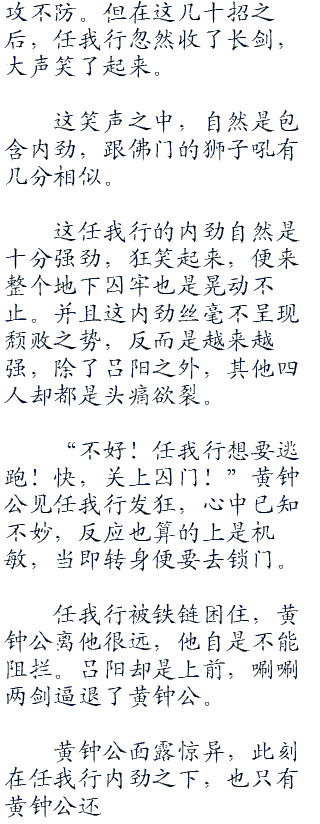 攻不防。但在这几十招之
后，任我行忽然收了长剑，
大声笑了起来。
这笑声之中，自然是包
含内劲，跟佛门的狮子吼有
几分相似。
这任我行的内劲自然是
十分强劲，狂笑起来，便来
整个地下囚牢也是晃动不
止。并且这内劲丝毫不呈现
颓败之势，反而是越来越
强，除了吕阳之外，其他四
人却都是头痛欲裂。
“不好！任我行想要逃
跑！快，关上囚门！”黄钟
公见任我行发狂，心中已知
不妙，反应也算的上是机
敏，当即转身便要去锁门。
任我行被铁链困住，黄
钟公离他很远，他自是不能
阻拦。吕阳却是上前，唰唰
两剑逼退了黄钟公。
黄钟公面露惊异，此刻
在任我行内劲之下，也只有
黄钟公还